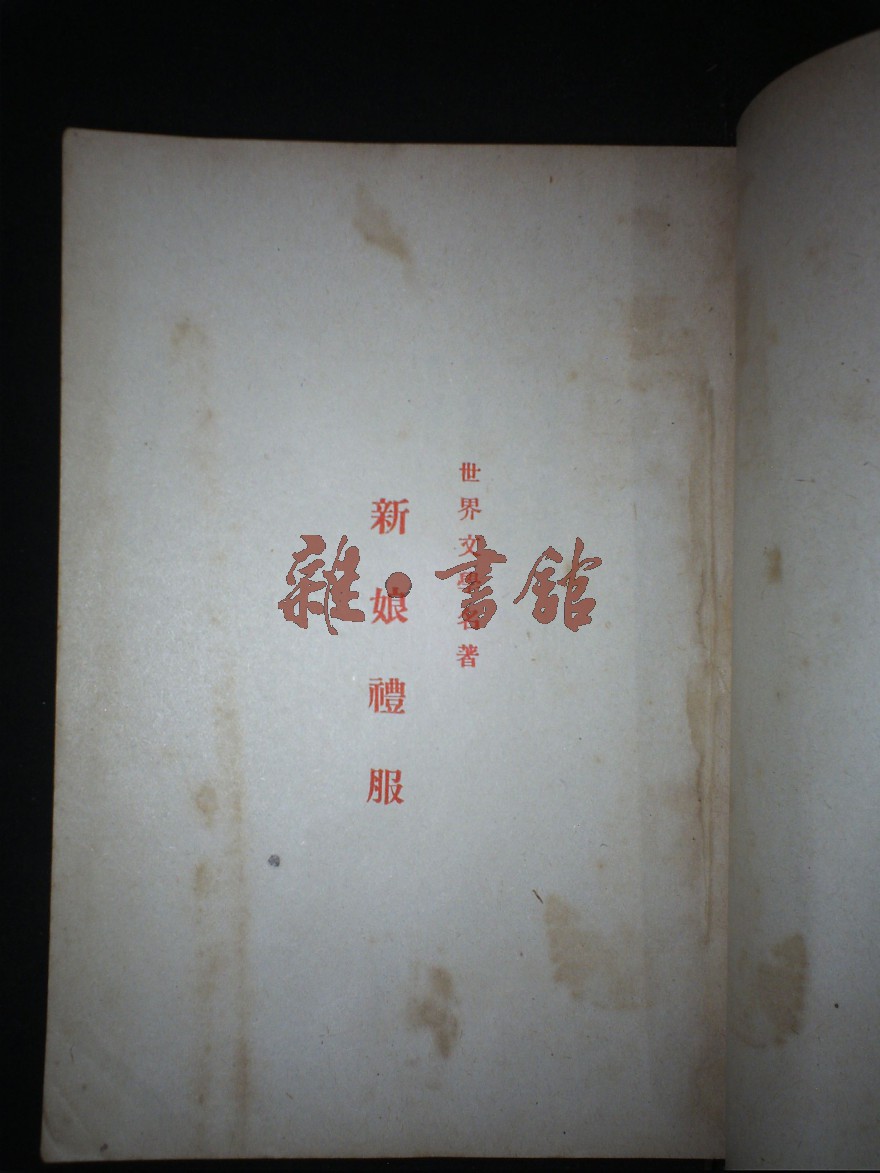 世界文學名著
新娘禮服
雜·書館